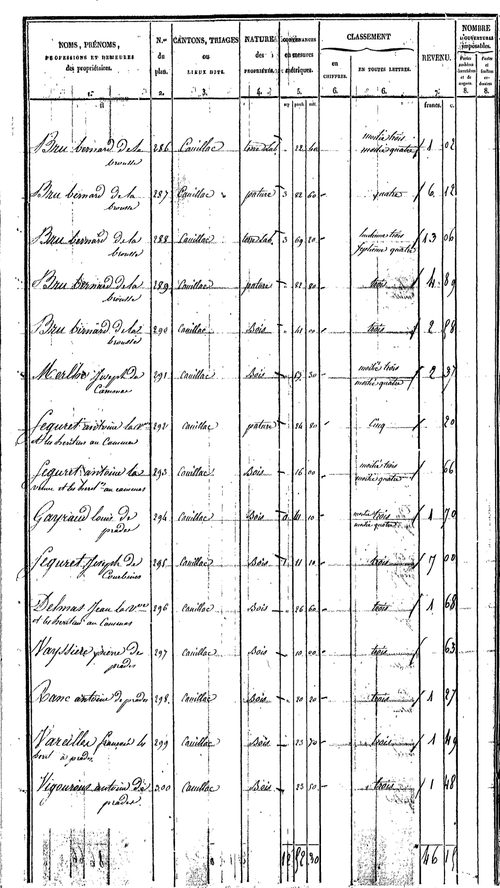 NOMS, PRÉNOMS,
PROFESSIONS ET DEMEURES
des propriétaires.
1.
N.os
du
plan.
2.
CANTONS, TRIAGES
ou
LIEUX DITS.
3.
NATURE
des
PROPRIÉTÉS.
4.
CONTENANCES
en mesures
métriques.
5.
CLASSEMENT
en
CHIFFRES.
6.
EN TOUTES LETTRES.
6.
REVENU.
7.
francs. c.
NOMBRE
D'OUVERTURES
imposables.
8.
8.
Bru bernard de la 286 Canillac terre lab. 22 40 moitié trois 1 02
brousse moitié quatre
Bru bernard de la 287 Canillac pature 3 82 60 quatre 6 12
brousse
Bru bernard de la 288 Canillac terre lab. 3 69 20 trois 13 06
brousse quatre
Bru bernard de la 289 Canillac pature 82 80 trois 4 89
brousse
Bru bernard de la 290 Canillac Bois 41 00 trois 2 58
brousse
Joseph de 291 Canillac Bois 57 30 moitié trois 2 37
moitié quatre
Seguret antoine la v.ve 292 Canillac pature 24 80 Cinq 20
et les heritiers au
Seguret antoine la 293 Canillac Bois 16 00 moitié trois 66
veuve et les au moitié quatre
Gayraud louis de 294 Canillac Bois 41 10 moitié trois 1 70
prades moitié quatre
Seguret Joseph de 295 Canillac Bois 1 11 10 trois 7 00
Delmas Jean la v.ve 296 Canillac Bois 26 60 trois 1 68
et les heritiers au
Vayssiere de 297 Canillac Bois 10 00 trois 63
prades
Ranc antoine de prades 298 Canillac Bois 20 20 trois 1 27
Vareilles françois les 299 Canillac Bois 23 70 trois 1 49
à prades
Vigouroux antoine de 300 Canillac Bois 23 50 trois 1 48
prades
12 52 30 46 15